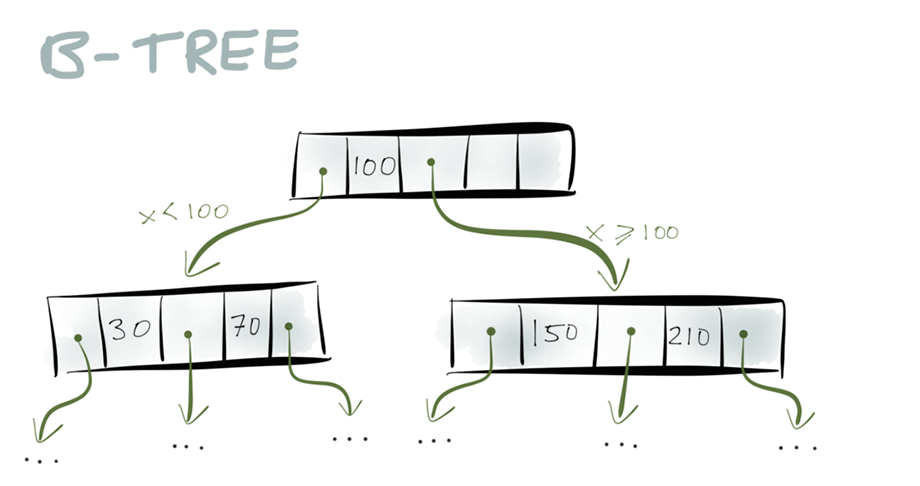 B-TREE
100
x < 100
x ≥ 100
30 70
150 210
... ... ... ... ... ...